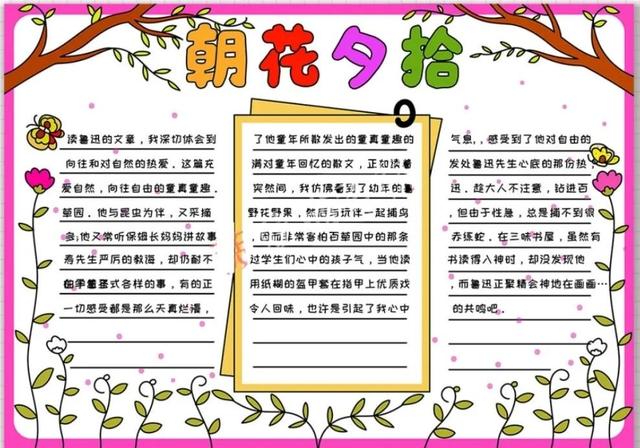 朝花夕拾
读鲁迅的文章，我深切体会到
了他童年所散发出的童真童趣的
气息,，感受到了他对自由的
向往和对自然的热爱．这篇充
满对童年回忆的散文，正如读着
发处鲁迅先生心底的那份热
爱自然，向往自由的童真童趣．
突然间，我仿佛看到了幼年的鲁
迅．趁大人不注意，钻进百
草园．他与昆虫为伴，又采摘
野花野果，然后与玩伴一起捕鸟
，但由于性急，总是捕不到很
多;他又常听保姆长妈妈讲故事
，因而非常害怕百草园中的那条
赤练蛇．在三味书屋，虽然有
寿先生严厉的教诲，却仍耐不
过学生们心中的孩子气，当他读
书读得入神时，却没发现他
式各样的事，有的正
用纸糊的盔甲套在指甲上优质戏
，而鲁迅正聚精会神地在画画…
一切感受都是那么天真烂漫，
令人回味，也许是引起了我心中
的共鸣吧．